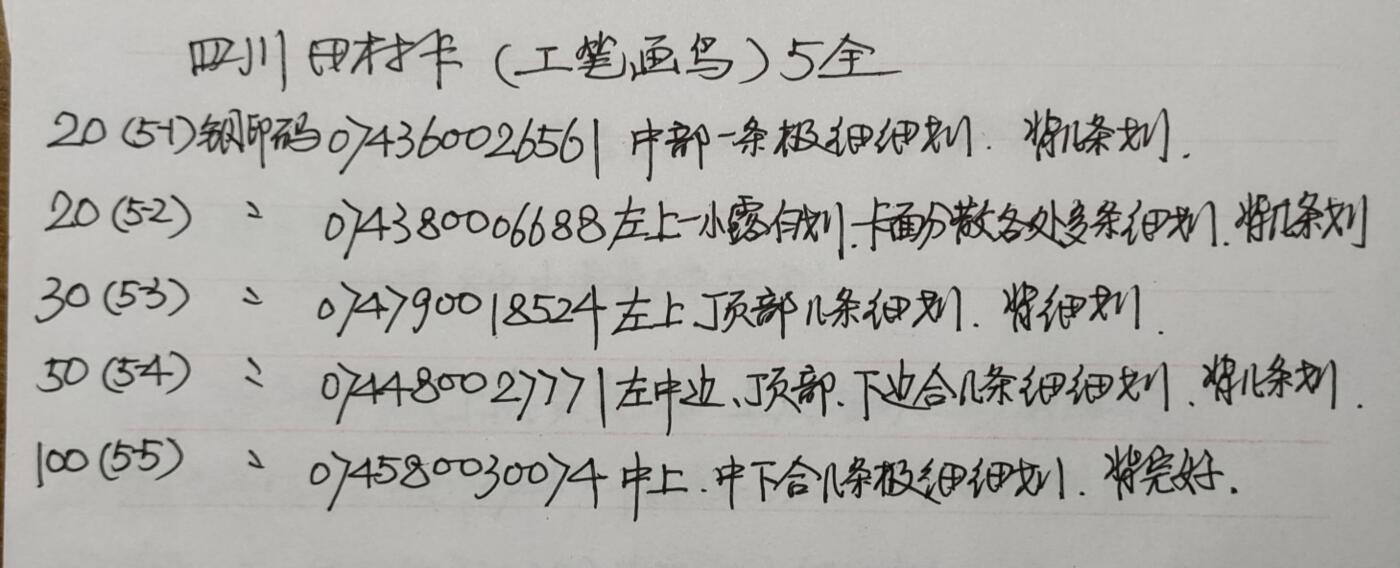 四川田村卡（工笔画鸟）5全
20(5-1)钢印码074360026561中部一条极细细划.背几条划.
20(5-2) 〃 074380006688左上一小露白划.卡面分散各处多条细划.背几条划
30(5-3) 〃 074790018524左上顶部几条细划.背细划.
50(5-4) 〃 074480027771左中边、顶部.下边合几条细细划.背几条划.
100(5-5) 〃 074580030074中上.中下合几条极细细划.背完好.